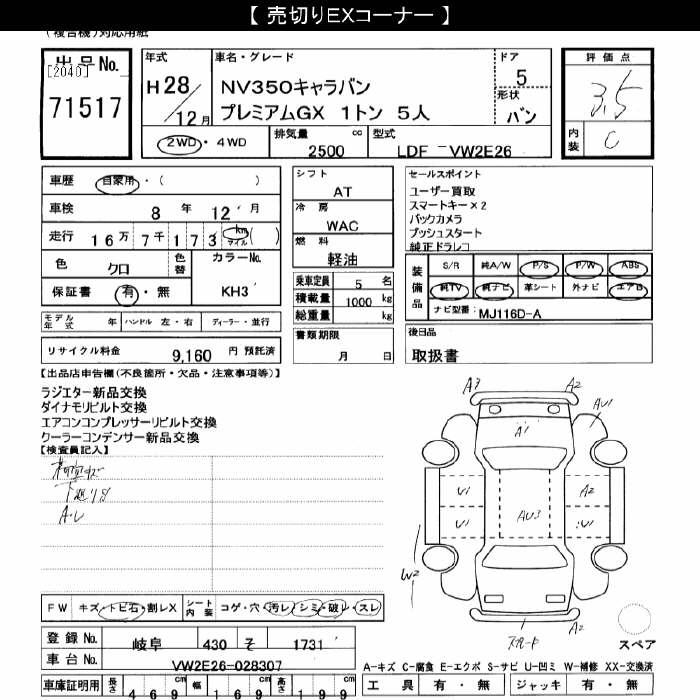 【 売切りEXコーナー 】
(複合機)対応用紙
出品No.
[2040]
71517
年式
H28/12月
車名・グレード
NV350キャラバン
プレミアムGX 1トン 5人
ドア
5
形状
バン
評価点
3.5
内装
C
2WD・4WD
排気量 2500 cc
型式 LDF-VW2E26
車歴 自家用・( )
車検 8年 12月
走行 16万7千173 km マイル ( )
色 クロ
色替
カラーNo. KH3
保証書 有・無
モデル年式 年 ハンドル 左・右 ディーラー・並行
リサイクル料金 9,160円 預託済
シフト
AT
冷房
WAC
燃料
軽油
乗車定員 5 名
積載量 1000 kg
総重量 kg
書類期限
月 日
セールスポイント
ユーザー買取
スマートキー×2
バックカメラ
プッシュスタート
純正ドラレコ
装備品
S/R 純A/W P/S P/W ABS
純TV 純ナビ 革シート 外ナビ エアロ
ナビ型番: MJ116D-A
後日品
取扱書
【出品店申告欄(不良箇所・欠品・注意事項等)】
ラジエター新品交換
ダイナモリビルト交換
エアコンコンプレッサーリビルト交換
クーラーコンデンサー新品交換
【検査員記入】
A・L
A3 A2
AU1
A1
U1 A2
U1 AU3 U1
W2
A2
スペア
FW キズ・トビ石・割レX シート内装 コゲ・穴・汚レ・シミ・破レ・スレ
登録No. 岐阜 430 そ 1731
車台No. VW2E26-028307
A-キズ C-腐食 E-エクボ S-サビ U-凹ミ W-補修 XX-交換済
車庫証明用 長さ 469cm 幅 169cm 高さ 199cm
工具 有・無 ジャッキ 有・無